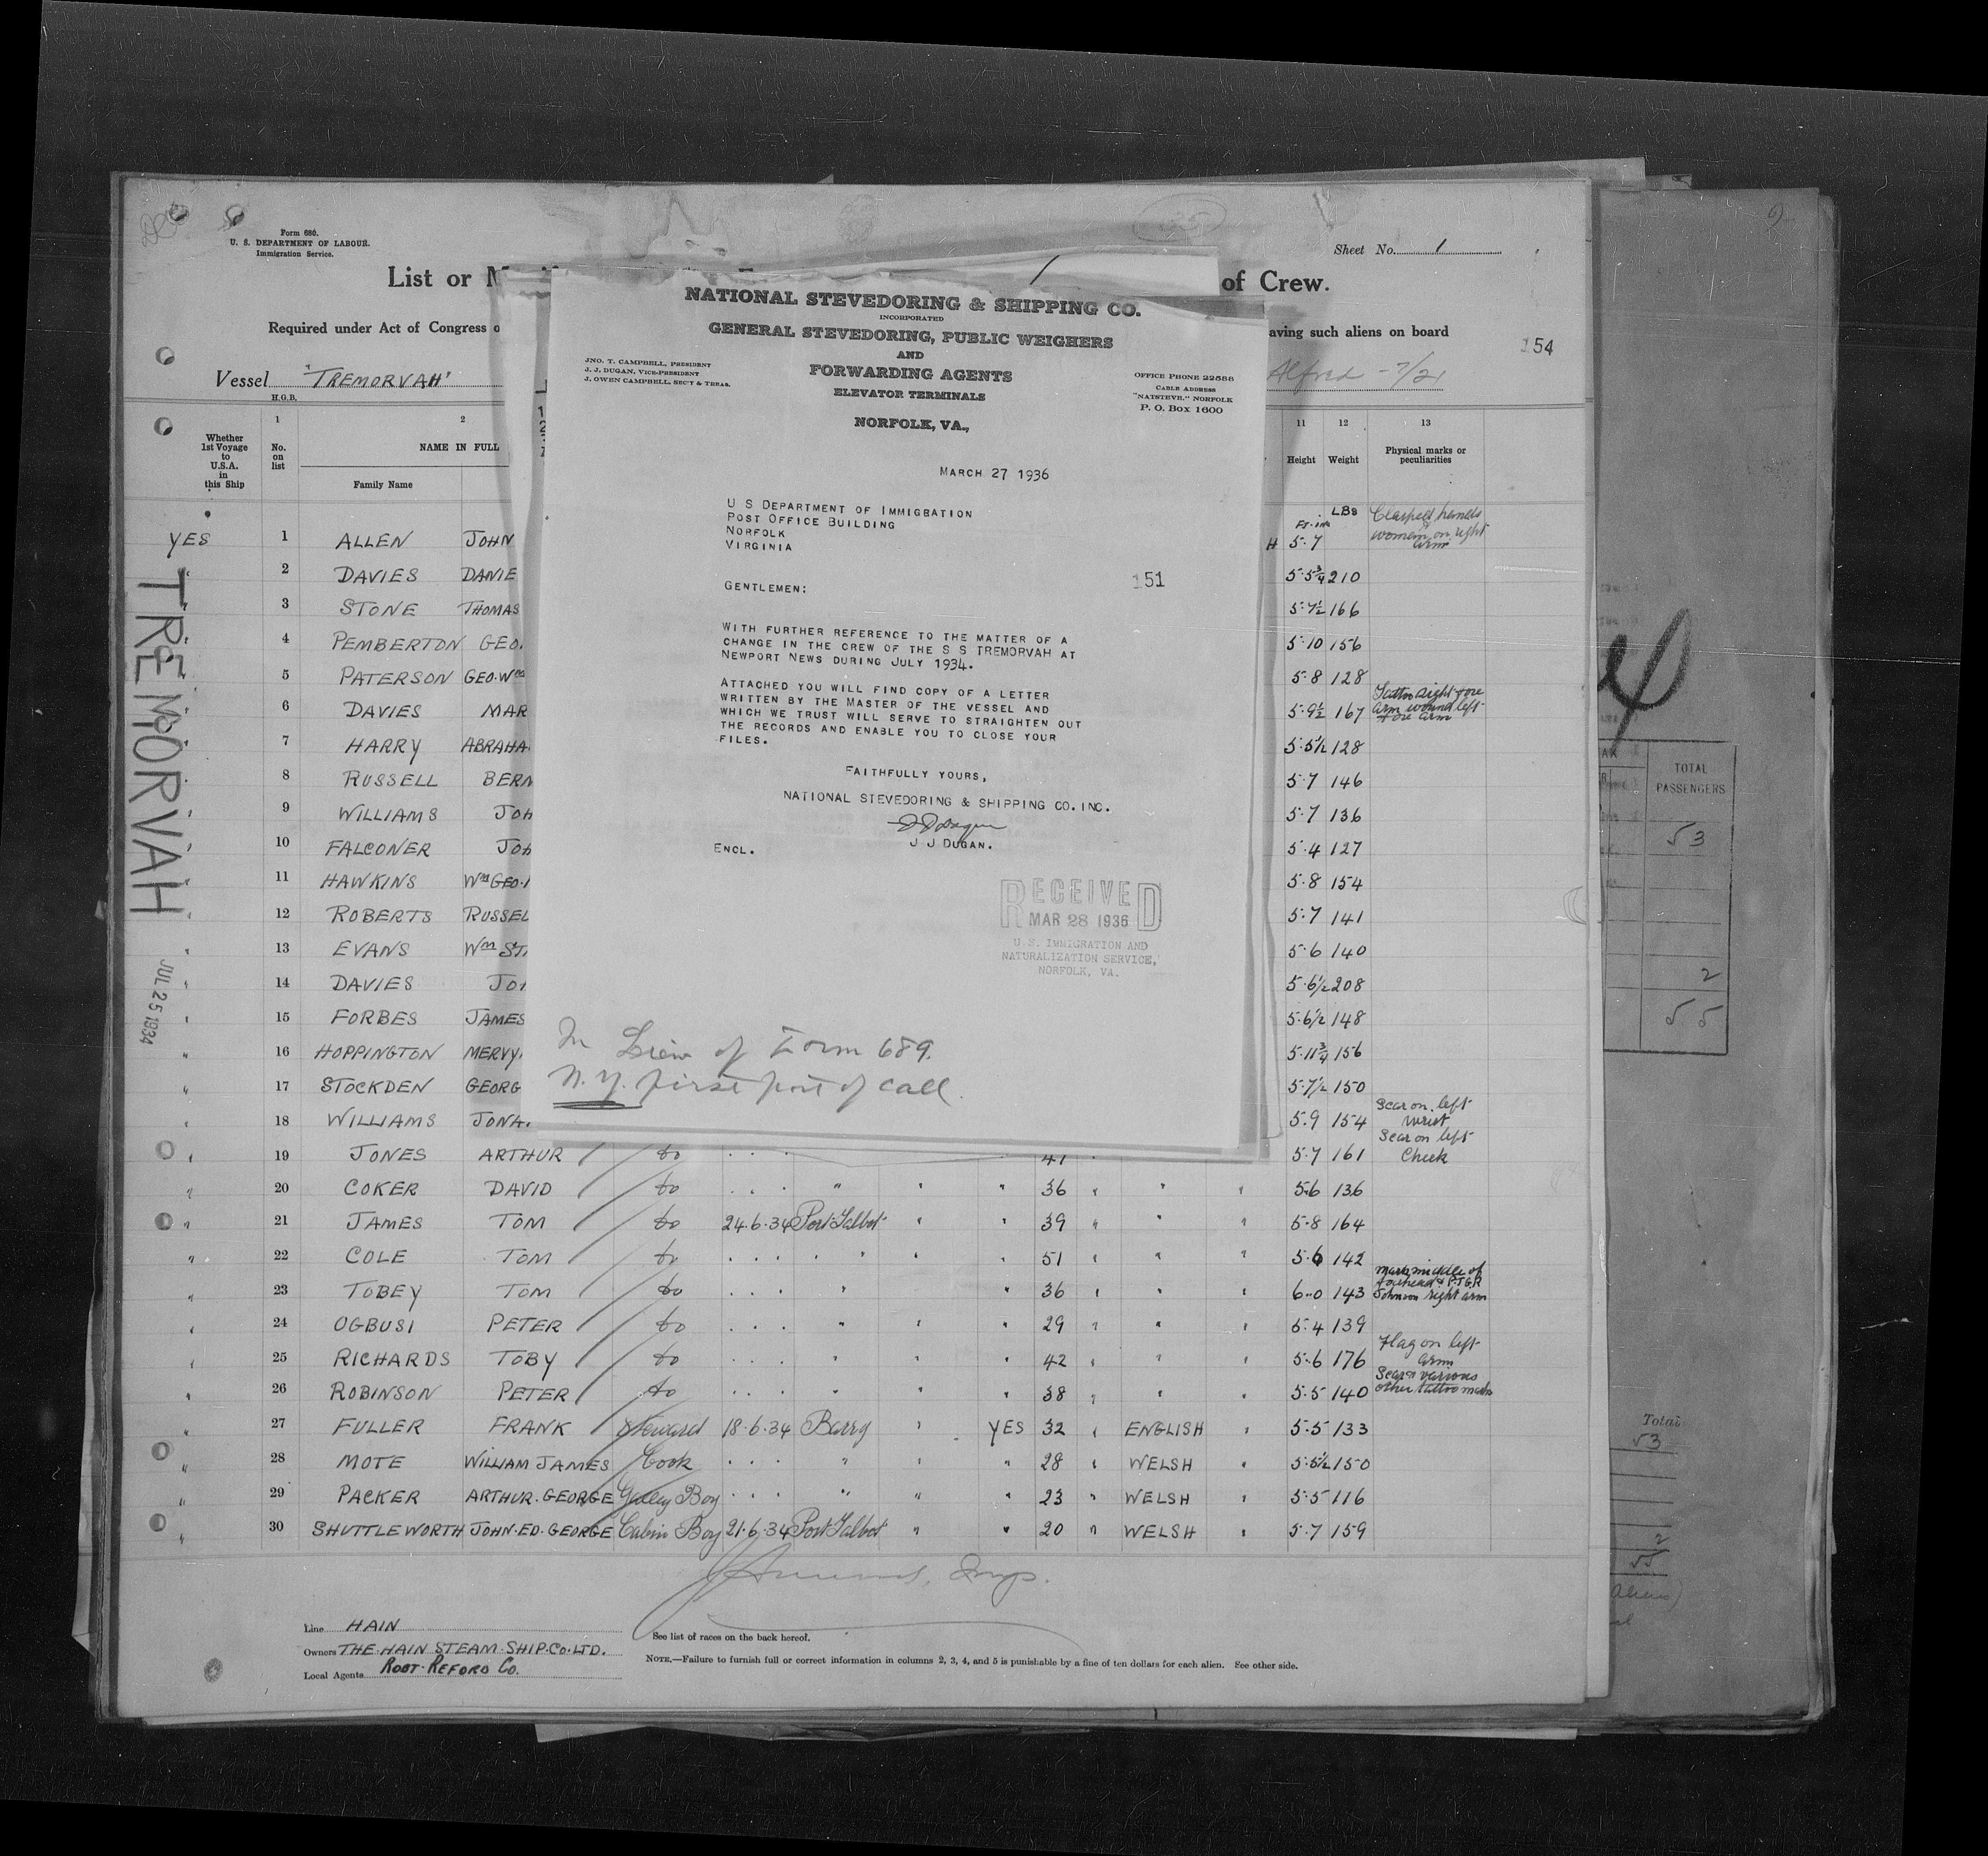 Form 680.
U. S. DEPARTMENT OF LABOUR.
Immigration Service.
Sheet No. 1
List or M
of Crew.
Required under Act of Congress o
aving such aliens on board
154
Vessel "TREMORVAH"
Alfred - 7/21
H.G.B.
Whether 1st Voyage to U.S.A. in this Ship
1 No. on list
2 NAME IN FULL
Family Name
11 Height
12 Weight
13 Physical marks or peculiarities
NATIONAL STEVEDORING & SHIPPING CO.
INCORPORATED
GENERAL STEVEDORING, PUBLIC WEIGHERS
AND
FORWARDING AGENTS
ELEVATOR TERMINALS
NORFOLK, VA.,
JNO. T. CAMPBELL, PRESIDENT
J. J. DUGAN, VICE-PRESIDENT
J. OWEN CAMPBELL, SEC'Y & TREAS.
OFFICE PHONE 22588
CABLE ADDRESS
"NATSTEVE." NORFOLK
P. O. BOX 1600
MARCH 27 1936
U S DEPARTMENT OF IMMIGRATION
POST OFFICE BUILDING
NORFOLK
VIRGINIA
151
GENTLEMEN:
WITH FURTHER REFERENCE TO THE MATTER OF A
CHANGE IN THE CREW OF THE S S TREMORVAH AT
NEWPORT NEWS DURING JULY 1934.
ATTACHED YOU WILL FIND COPY OF A LETTER
WRITTEN BY THE MASTER OF THE VESSEL AND
WHICH WE TRUST WILL SERVE TO STRAIGHTEN OUT
THE RECORDS AND ENABLE YOU TO CLOSE YOUR
FILES.
FAITHFULLY YOURS,
NATIONAL STEVEDORING & SHIPPING CO. INC.
J J Dugan
J J DUGAN.
ENCL.
RECEIVED
MAR 28 1936
U.S. IMMIGRATION AND
NATURALIZATION SERVICE,
NORFOLK, VA.
In view of Form 689.
N.Y. first port of call.
TREMORVAH
JUL 25 1934
Ft. ins LBS
YES 1 ALLEN JOHN H 5.7 Clasped hands women on right arm
2 DAVIES DANIE 5.5¾ 210
3 STONE THOMAS 5.7½ 166
4 PEMBERTON GEO. 5.10 156
5 PATERSON GEO.Wm 5.8 128
6 DAVIES MAR 5.9½ 167 Tattoo right fore arm wound left fore arm
7 HARRY ABRAHA 5.5½ 128
8 RUSSELL BERN 5.7 146
9 WILLIAMS JOH 5.7 136
10 FALCONER JOH 5.4 127
11 HAWKINS Wm GEO. 5.8 154
12 ROBERTS RUSSEL 5.7 141
13 EVANS Wm ST 5.6 140
14 DAVIES JO 5.6½ 208
15 FORBES JAMES 5.6½ 148
16 HOPPINGTON MERVY 5.11¾ 156
17 STOCKDEN GEORG 5.7½ 150
18 WILLIAMS JONA. 5.9 154 Scar on left wrist
19 JONES ARTHUR do 41 5.7 161 Scar on left Cheek
20 COKER DAVID do " " " 36 " " " 5.6 136
21 JAMES TOM do 24.6.34 Port Talbot " " 39 " " " 5.8 164
22 COLE TOM do " " " 51 " " " 5.6 142
23 TOBEY TOM do " " 36 " " " 6.0 143 mark middle of forehead & P.J.G.R Johnson right arm
24 OGBUSI PETER do " " " 29 " " " 5.4 139
25 RICHARDS TOBY do " " " 42 " " " 5.6 176 Flag on left arm
26 ROBINSON PETER do " " " 38 " " " 5.5 140 Scar & various other tattoo marks
27 FULLER FRANK Steward 18.6.34 Barry " YES 32 " ENGLISH " 5.5 133
28 MOTE WILLIAM JAMES Cook " " " 28 " WELSH " 5.5½ 150
29 PACKER ARTHUR.GEORGE Galley Boy " " " 23 " WELSH " 5.5 116
30 SHUTTLEWORTH JOHN.ED.GEORGE Cabin Boy 21.6.34 Port Talbot " " 20 " WELSH " 5.7 159
Line HAIN
Owners THE HAIN STEAM SHIP.CO.LTD.
Local Agents ROBT. REFORD CO.
See list of races on the back hereof.
NOTE.—Failure to furnish full or correct information in columns 2, 3, 4, and 5 is punishable by a fine of ten dollars for each alien. See other side.
TOTAL PASSENGERS
53
2
55
Total
53
2
55